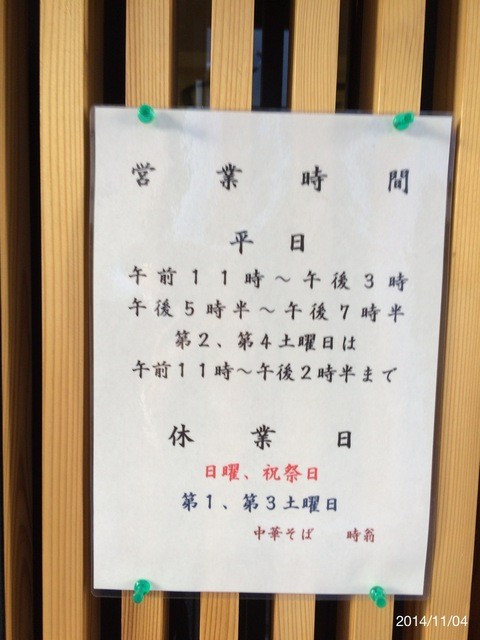 営業時間
平日
午前11時～午後3時
午後5時半～午後7時半
第2、第4土曜日は
午前11時～午後2時半まで
休業日
日曜、祝祭日
第1、第3土曜日
中華そば 時翁
2014/11/04